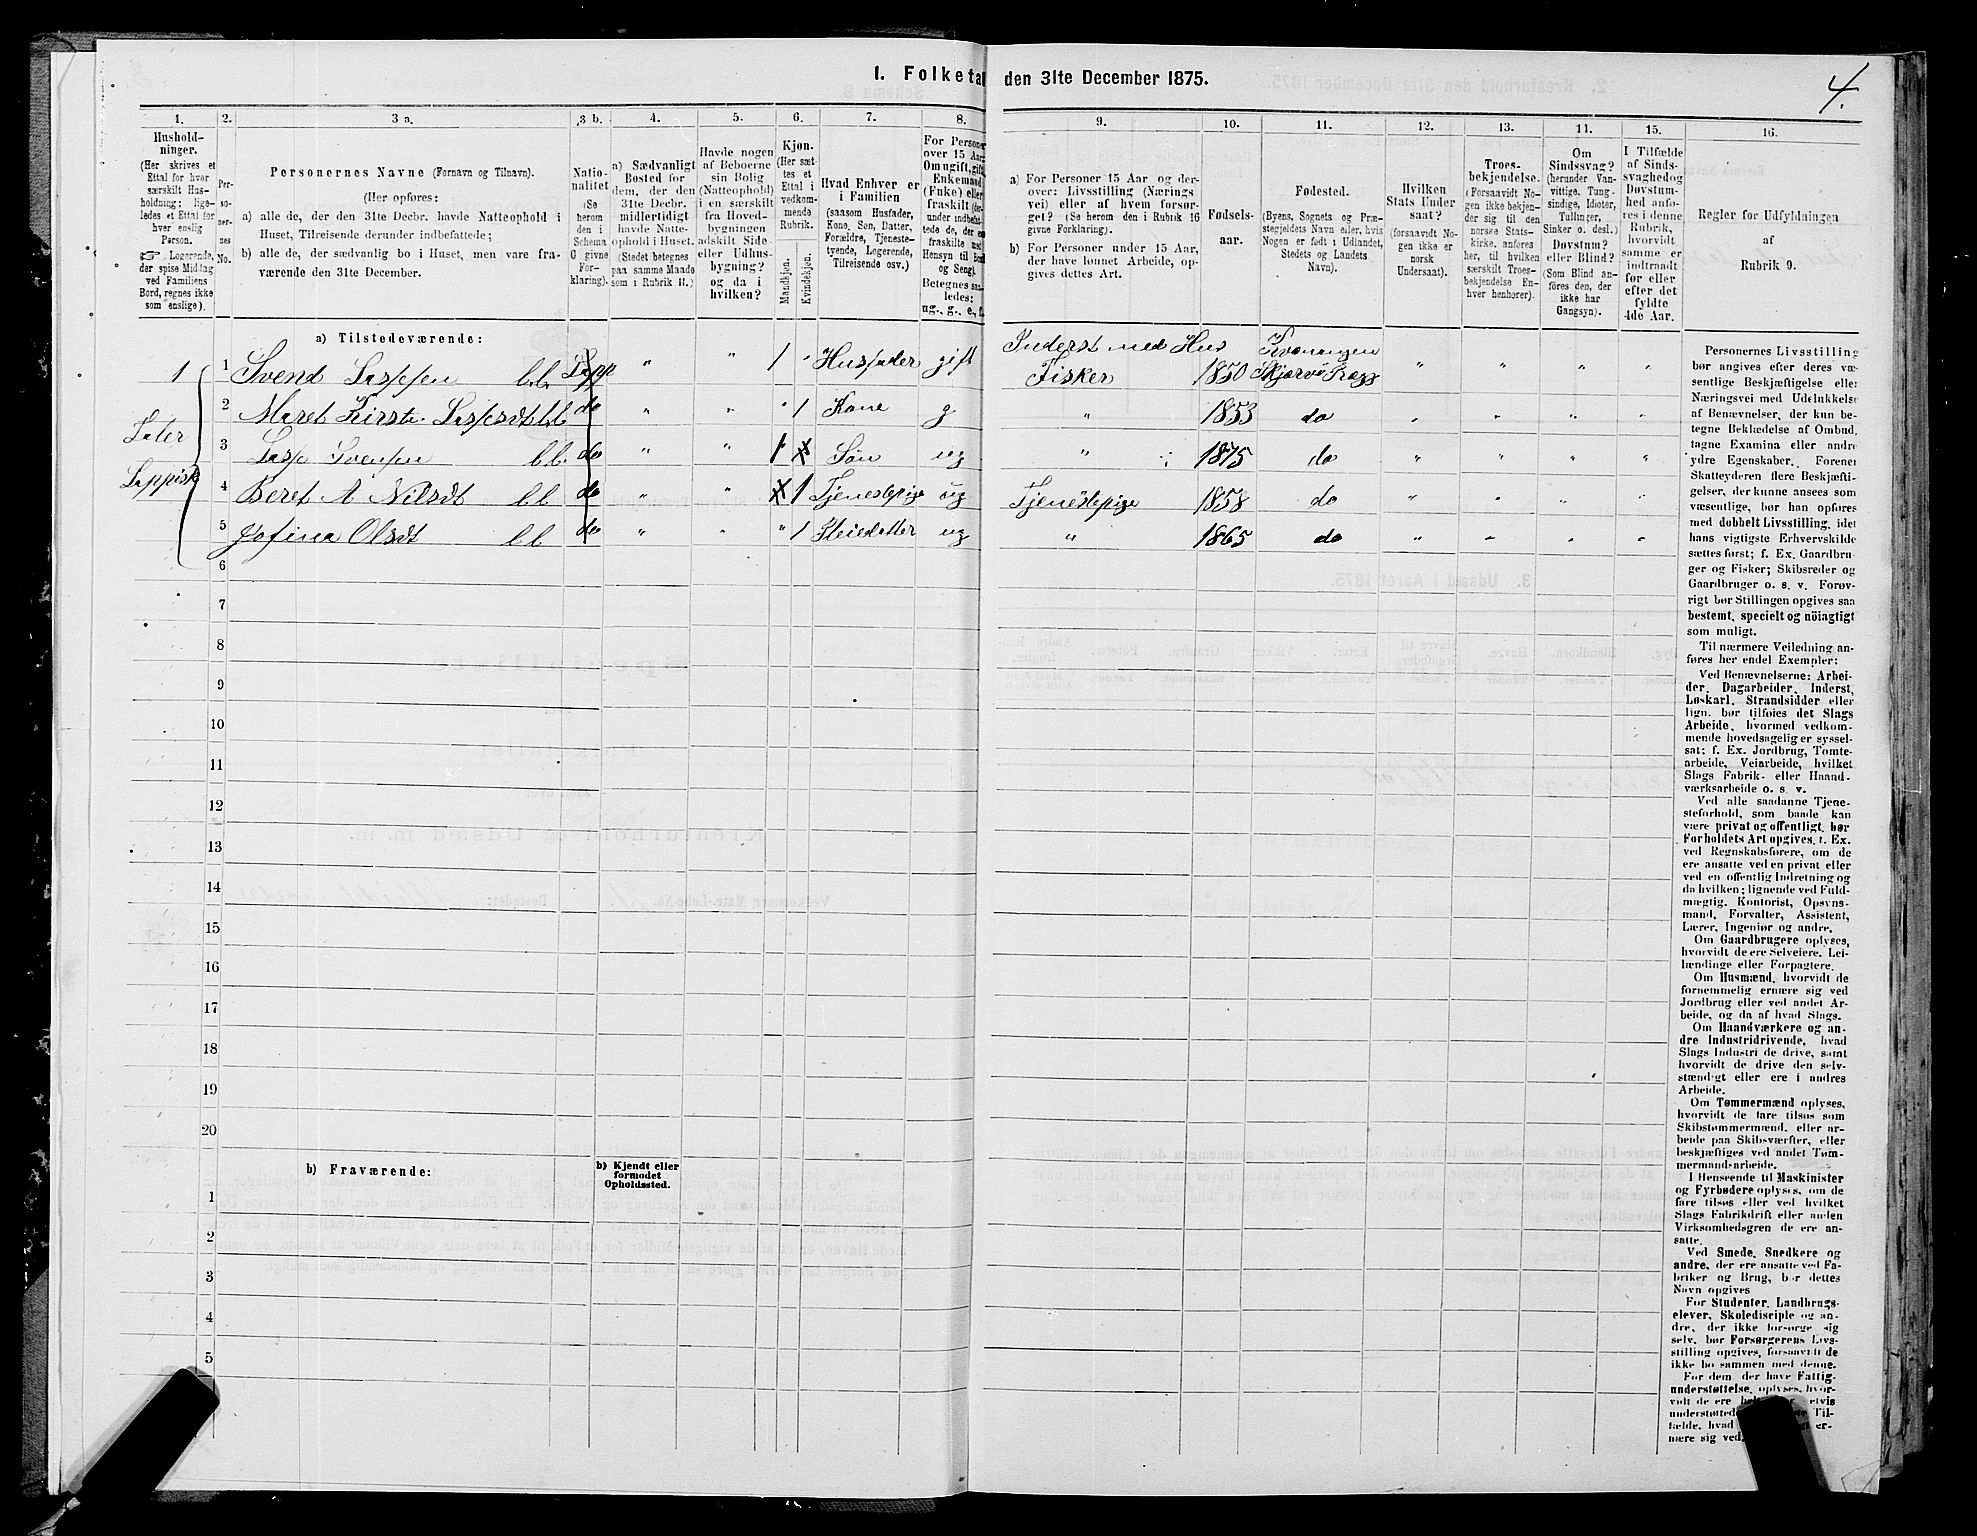 1. Folketal den 31te December 1875.
4.
1.
Hushold-
ninger.
(Her skrives et
Ettal for hver
særskilt Hus-
holdning; lige-
ledes et Ettal for
hver enslig
Person.
☞ Logerende,
der spise Middag
ved Familiens
Bord, regnes ikke
som enslige).
2.
Per-
so-
ner-
nes
No.
3 a.
Personernes Navne (Fornavn og Tilnavn).
(Her opføres:
a) alle de, der den 31te Decbr. havde Natteophold i
Huset, Tilreisende derunder indbefattede;
b) alle de, der sædvanlig bo i Huset, men vare fra-
værende den 31te Decbr.
3 b.
Natio-
nalitet
(Se
herom
den i
Schema
C givne
For-
klaring).
4.
a) Sædvanligt
Bosted for
dem, der den
31te Decbr.
midlertidigt
havde Natte-
ophold i Huset.
(Stedet betegnes
paa samme Maade
som i Rubrik 11.)
5.
Havde nogen
af Beboerne
sin Bolig
(Natteophold)
i en særskilt
fra Hoved-
bygningen
adskilt Side-
eller Udhus-
bygning?
og da i
hvilken?
6.
Kjøn.
(Her sæt-
tes et
Ettal i
vedkom-
mende
Rubrik.
Mandkjøn.
Kvindekjøn.
7.
Hvad Enhver er
i Familien
(saasom Husfader,
Kone, Søn, Datter,
Forældre, Tjeneste-
tyende, Logerende,
Tilreisende osv.)
8.
For Personer
over 15 Aar:
Om ugift, gift,
Enkemand
(Enke) eller
fraskilt
Hensyn til Bord
og Seng).
Betegnes saa-
ledes:
ug., g., e., f.
9.
a) For Personer 15 Aar og der-
over: Livsstilling (Nærings-
vei) eller af hvem forsør-
get? (Se herom den i Rubrik 16
givne Forklaring).
b) For Personer under 15 Aar,
der have lønnet Arbeide, op-
gives dettes Art.
10.
Fødsels-
aar.
11.
Fødested.
(Byens, Sognets og Præ-
stegjeldets Navn eller, hvis
Nogen er født i Udlandet,
Stedets og Landets
Navn).
12.
Hvilken
Stats Under-
saat?
(forsaavidt No-
gen ikke er
norsk
Undersaat).
13.
Troes-
bekjendelse.
(Forsaavidt No-
gen ikke bekjen-
der sig til den
norske Stats-
kirke, anføres
her, til hvilken
særskilt Troes-
bekjendelse En-
hver henhører).
11.
Om
Sindssvag?
(herunder Van-
vittige, Tung-
sindige, Idioter,
Tullinger,
Sinker o. desl.)
Døvstum?
eller Blind?
(Som Blind an-
føres den, der
ikke har
Gangsyn).
15.
I Tilfælde
af Sinds-
svaghed og
Døvstum-
hed anfø-
res i denne
Rubrik,
hvorvidt
samme er
indtraadt
før eller
efter det
fyldte
4de Aar.
16.
Regler for Udfyldningen
af
Rubrik 9.
a) Tilstedeværende:
1
1 Svend Laspsen b.b. Lapp " " 1 " Husfader gift Inderst med Hus Fisker 1850 Kvænangen Skjervø Præg " " " "
2 Maret Kirste Laspsdt b.b do " " " 1 Kone g " 1853 do " " " "
Taler
3 Lasp Svensen b.b. do " " 1 Søn ug " 1875 do " " " "
Lappisk
4 Beret A Nilsdt b.b do " " 1 Tjenestepige ug Tjenestepige 1858 do " " " "
5 Josina Olsdt b.b do " " " 1 Pleiedatter ug " 1865 do " " " "
6
7
8
9
10
11
12
13
14
15
16
17
18
19
20
b) Fraværende:
b) Kjendt eller
formodet
Opholdssted.
1
2
3
4
5
Personernes Livsstilling
bør angives efter deres væ-
sentlige Beskjæftigelse eller
Næringsvei med Udelukkelse
af Benævnelser, der kun be-
tegne Beklædelse af Ombud,
tagne Examina eller andre
ydre Egenskaber. Forener
Skatteyderen flere Beskjæfti-
gelser, der kunne ansees som
væsentlige, bør han opføres
med dobbelt Livsstilling, idet
hans vigtigste Erhvervskilde
sættes først; f. Ex. Gaardbru-
ger og Fisker; Skibsreder og
Gaardbruger o. s. v. Forøv-
rigt bør Stillingen opgives saa
bestemt, specielt og nöiagtigt
som muligt.
Til nærmere Veiledning an-
føres her endel Exempler:
Ved Benævnelserne: Arbei-
der, Dagarbeider, Inderst,
Løskarl, Strandsidder eller
lign. bør tilføies det Slags
Arbeide, hvormed vedkom-
mende hovedsagelig er syssel-
sat; f. Ex. Jordbrug, Tomte-
arbeide, Veiarbeide, hvilket
Slags Fabrik- eller Haand-
værksarbeide o. s. v.
Ved alle saadanne Tjene-
steforhold, som baade kan
være privat og offentligt, bør
Forholdets Art opgives, f. Ex.
ved Regnskabsførere, om de
ere ansatte ved en privat eller
ved en offentlig Indretning og
da hvilken; lignende ved Fuld-
mægtig, Kontorist, Opsyns-
mand, Forvalter, Assistent,
Lærer, Ingeniør og andre.
Om Gaardbrugere oplyses,
hvorvidt de ere Selveiere, Lei-
lændinge eller Forpagtere.
Om Husmænd, hvorvidt de
fornemmelig ernære sig ved
Jordbrug eller ved andet Ar-
beide, og da af hvad Slags.
Om Haandværkere og an-
dre Industridrivende, hvad
Slags Industri de drive, samt
hvorvidt de drive den selv-
stændigt eller ere i andres
Arbeide.
Om Tømmermænd oplyses,
hvorvidt de fare tilsøs som
Skibstømmermænd, eller ar-
beide paa Skibsværfter, eller
beskjæftiges ved andet Tøm-
mermandsarbeide.
I Henseende til Maskinister
og Fyrbødere oplyses, om de
fare tilsøs eller ved hvilket
Slags Fabrikdrift eller anden
Virksomhedsgren de ere an-
satte.
Ved Smede, Snedkere og
andre, der ere ansatte ved Fa-
briker og Brug, bør dettes
Navn opgives
For Studenter, Landbrugs-
elever, Skoledisciple og an-
dre, der ikke forsørge sig
selv, bør Forsørgerens Livs-
stilling opgives, forsaavidt de
ikke bo sammen med denne.
For dem, der have Fattig-
understøttelse, oplyses, hvor-
vidt de ere
understøttede
fælde, hvad
nære sig ved.